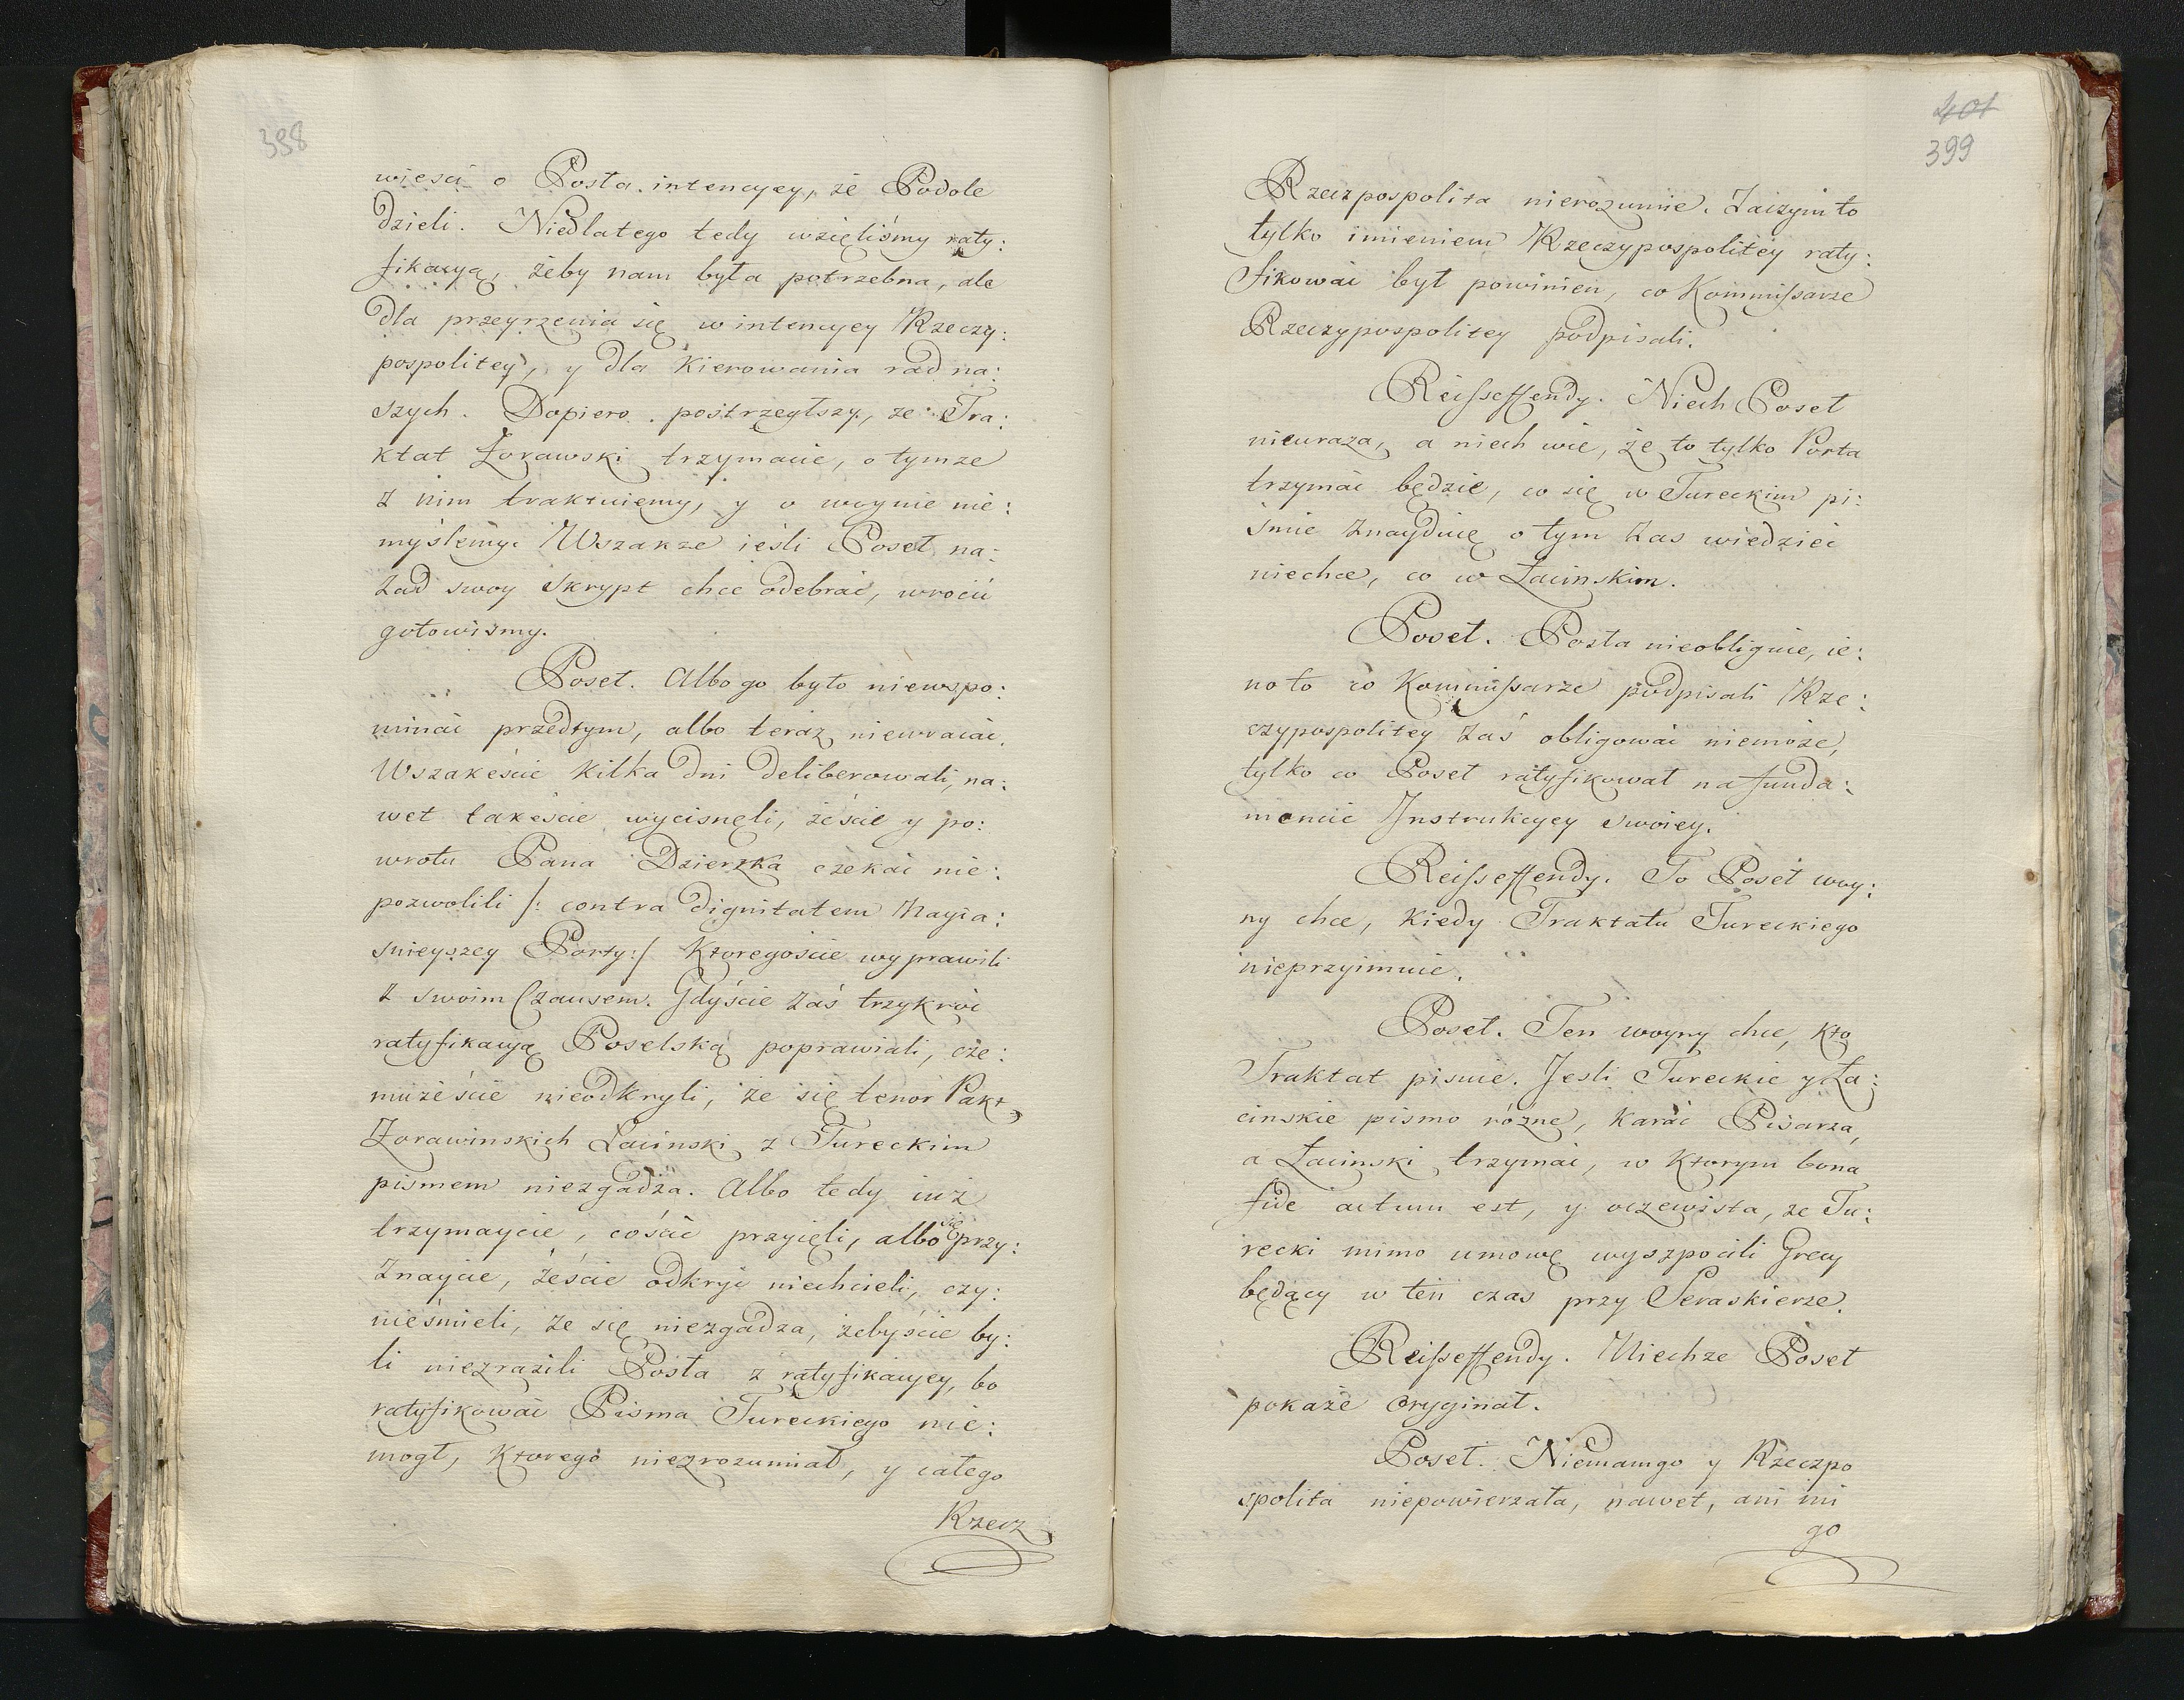 398
wieści o Posła intencyey, że Podole
dzieli. Niedlatego tedy wzięliśmy raty:
fikacyą, żeby nam była potrzebna, ale
dla przeyrzenia się w intencyey Rzeczy:
pospolitey, y dla kierowania rad na:
szych. Dopiero postrzegłszy, że Tra:
ktat Żorawski trzymacie, o tymże
z nim traktuiemy, y o woynie nie:
myślemy. Wszakże ieśli Poseł na:
zad swoy skrypt chce odebrać, wrócić
gotowiśmy.
Poseł. Albo go było niewspo:
minać przedtym, albo teraz niewracać.
Wszakeście kilka dni deliberowali, na:
wet takeście wycisnęli, żeście y po:
wrotu Pana Dzierżka czekać nie:
pozwolili /: contra dignitatem Nayia:
snieyszey Porty:/ ktoregoście wyprawili
z swoim Czausem. Gdyście zaś trzykroć
ratyfikacyą Poselską poprawiali, cze:
mużeście nieodkryli, że się tenor Pakt
Żorawinskich Łaciński z Tureckim
pismem niezgadża. Albo tedy iuż
trzymaycie, coście przyięli, albo się przy:
znaycie, żeście odkryć niechcieli, czy:
nieśmieli, że się niezgadza, żebyście by:
li niezrazili Posła z ratyfikacyey, bo
ratyfikować Pisma Tureckiego nie:
mogł, ktorego niezrozumiał, y całego
Rzecz
401
399
Rzeczpospolita nierozumie. Zaczym to
tylko imieniem Rzeczypospolitey raty:
fikować był powinien, co Kommissarze
Rzeczypospolitey podpisali.
Reisseffendy. Niech Poseł
nieuraza, a niech wie, że to tylko Porta
trzymać będzie, co się w Tureckim pi:
śmie znayduię o tym zas wiedzieć
niechce, co w Łacinskim.
Poseł. Posła nieobliguie, ie:
no to co Kommissarze podpisali Rze:
czypospolitey zaś obligować niemoże,
tylko co Poseł ratyfikował na funda:
mencie Instrukcyey swoiey.
Reisseffendy. To Poseł woy:
ny chce, kiedy Traktatu Tureckiego
nieprzyimuie.
Poseł. Ten woyny chce, kto
Traktat psuie. Jesli Tureckie y Ła:
cinskie pismo różne, karać Pisarza,
a Łacinski trzymać, w ktorym bona
fide actum est, y oczewista, ze Tu:
recki mimo umowę wyszpocili Grecy
będący w ten czas przy Seraskierze.
Reisseffendy. Niechze Poseł
pokaże oryginał.
Poseł. Niemamgo y Rzeczpo
spolita niepowierzała, nawet, ani mi
go